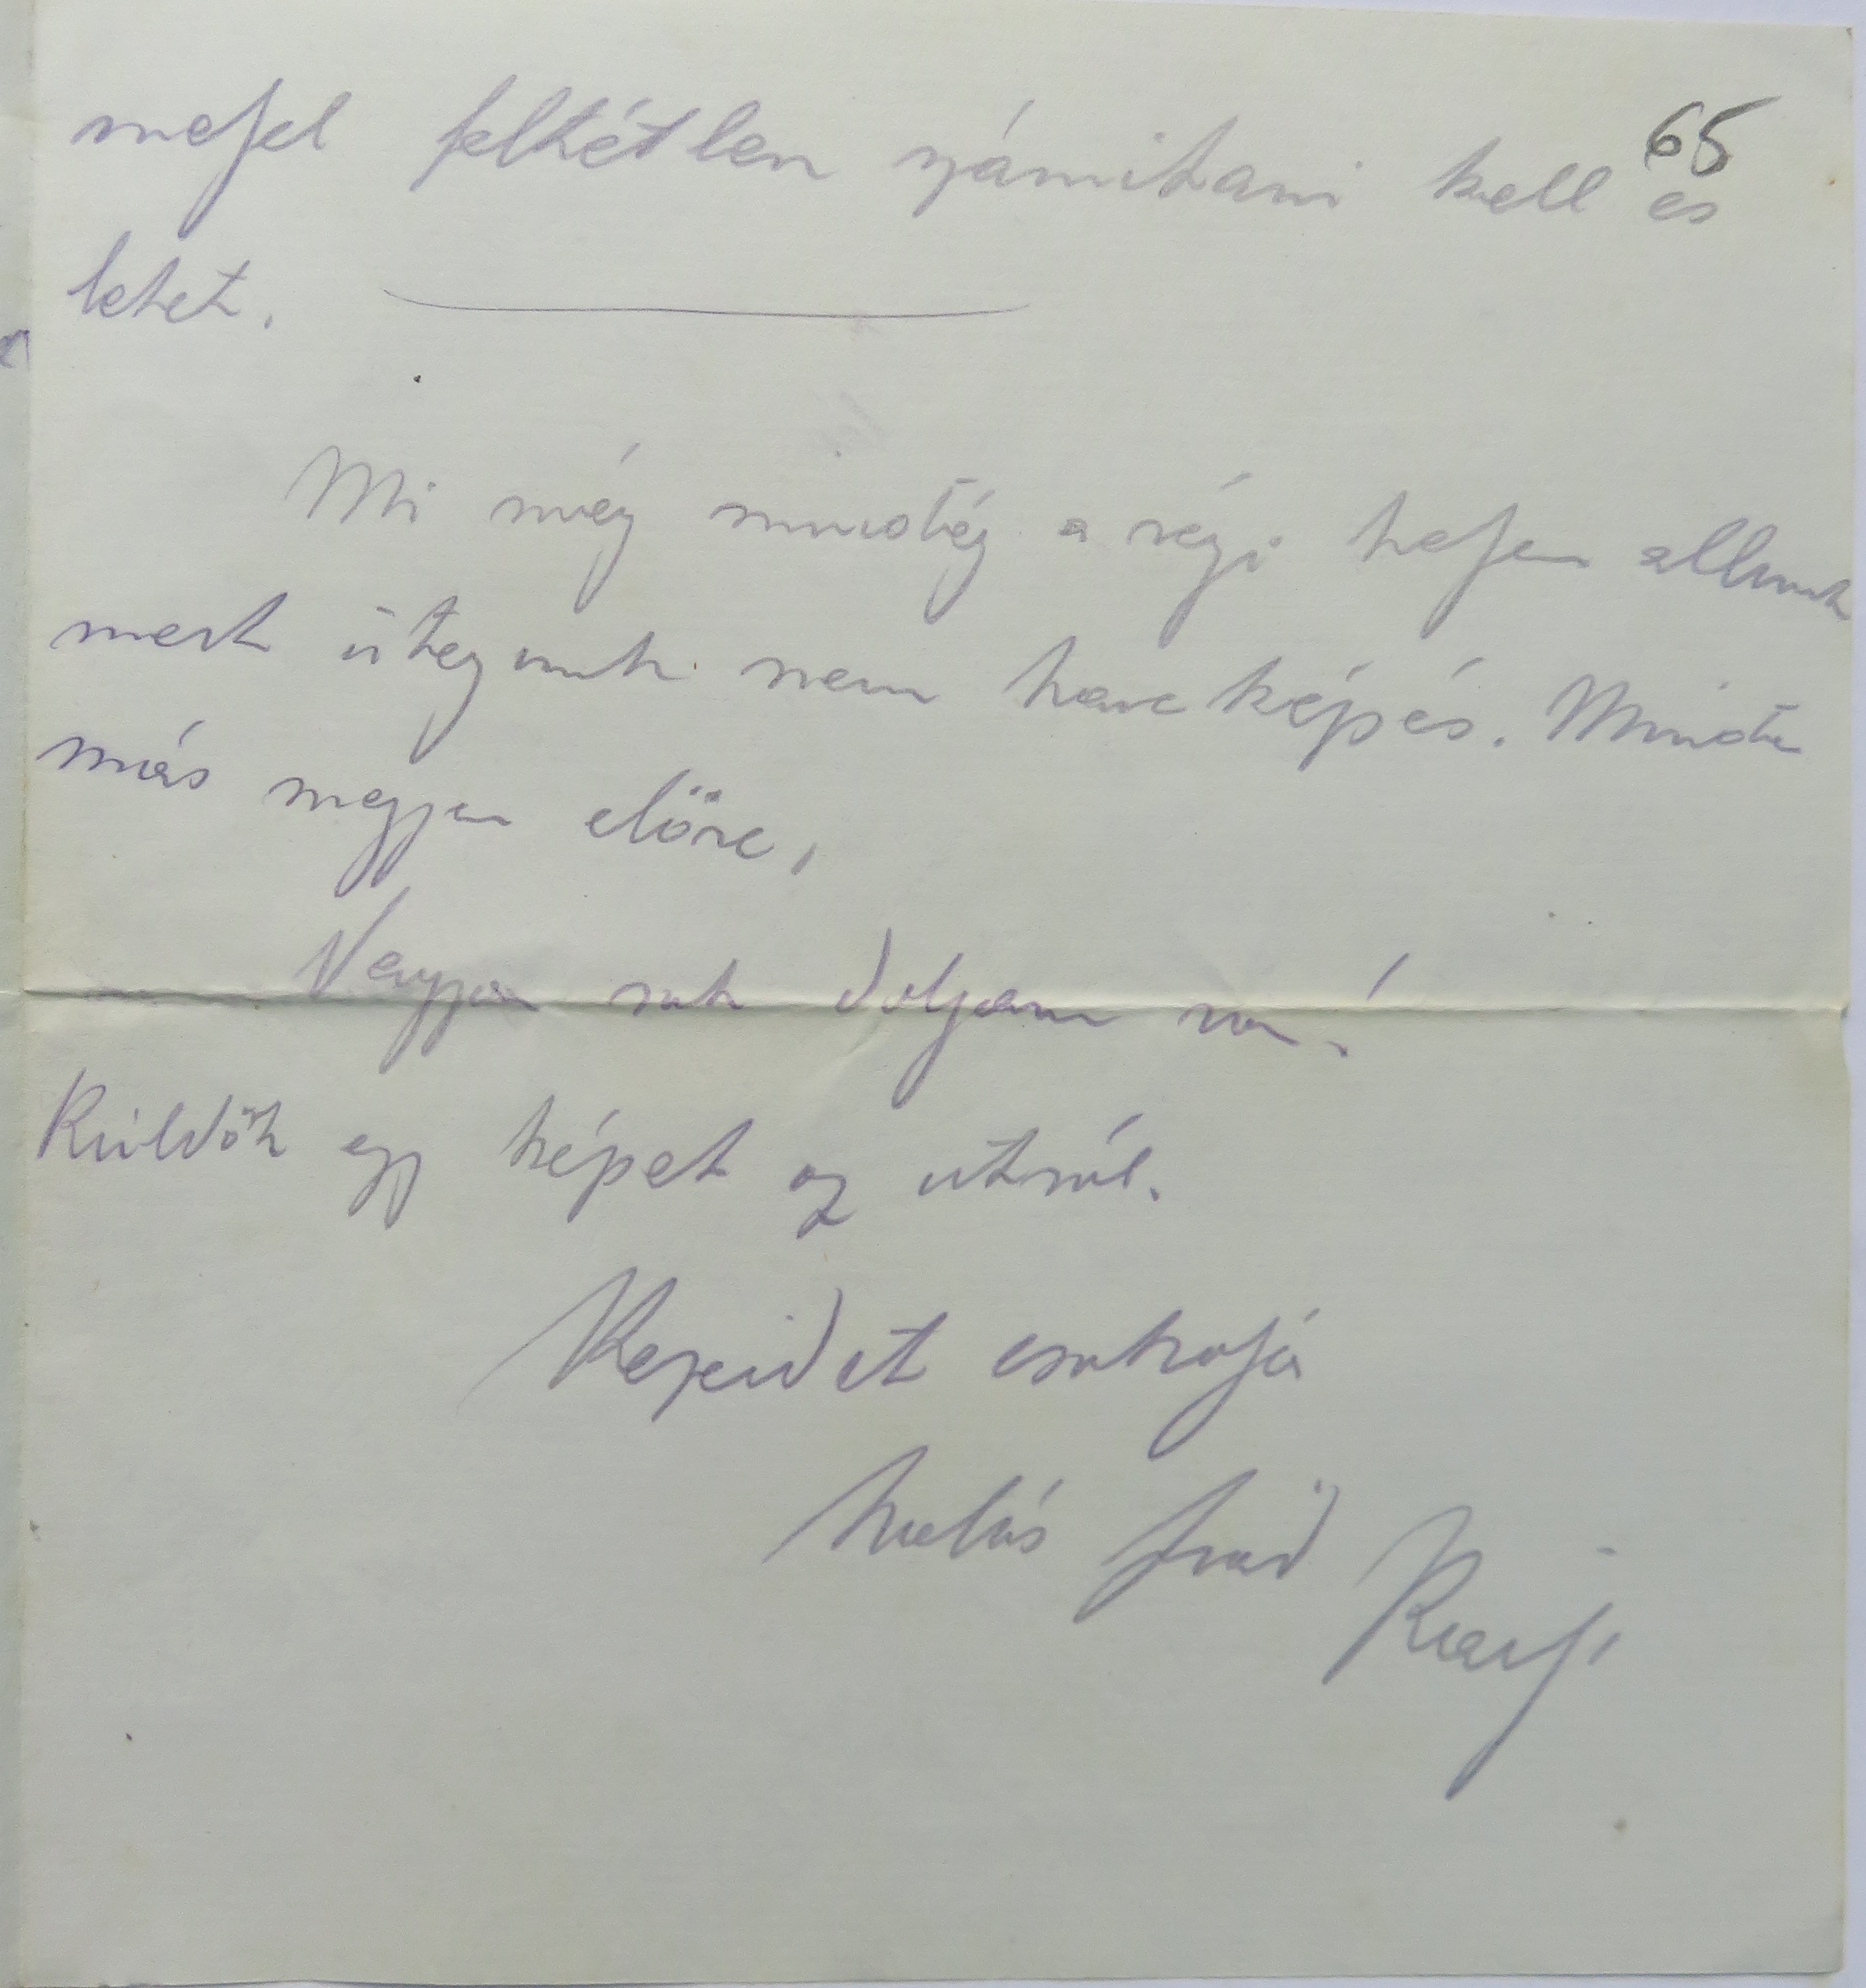 65
mellyel feltétlen számitani kell és
lehet.
Mi még mindég a régi helyen allunk
mert ütegunk nem harcképés. Minden
más megyen előre,
Nagyon sok dolgom van!
Küldök egy képet az utról.
Kezeidet csokolja
hálás fiad Karji